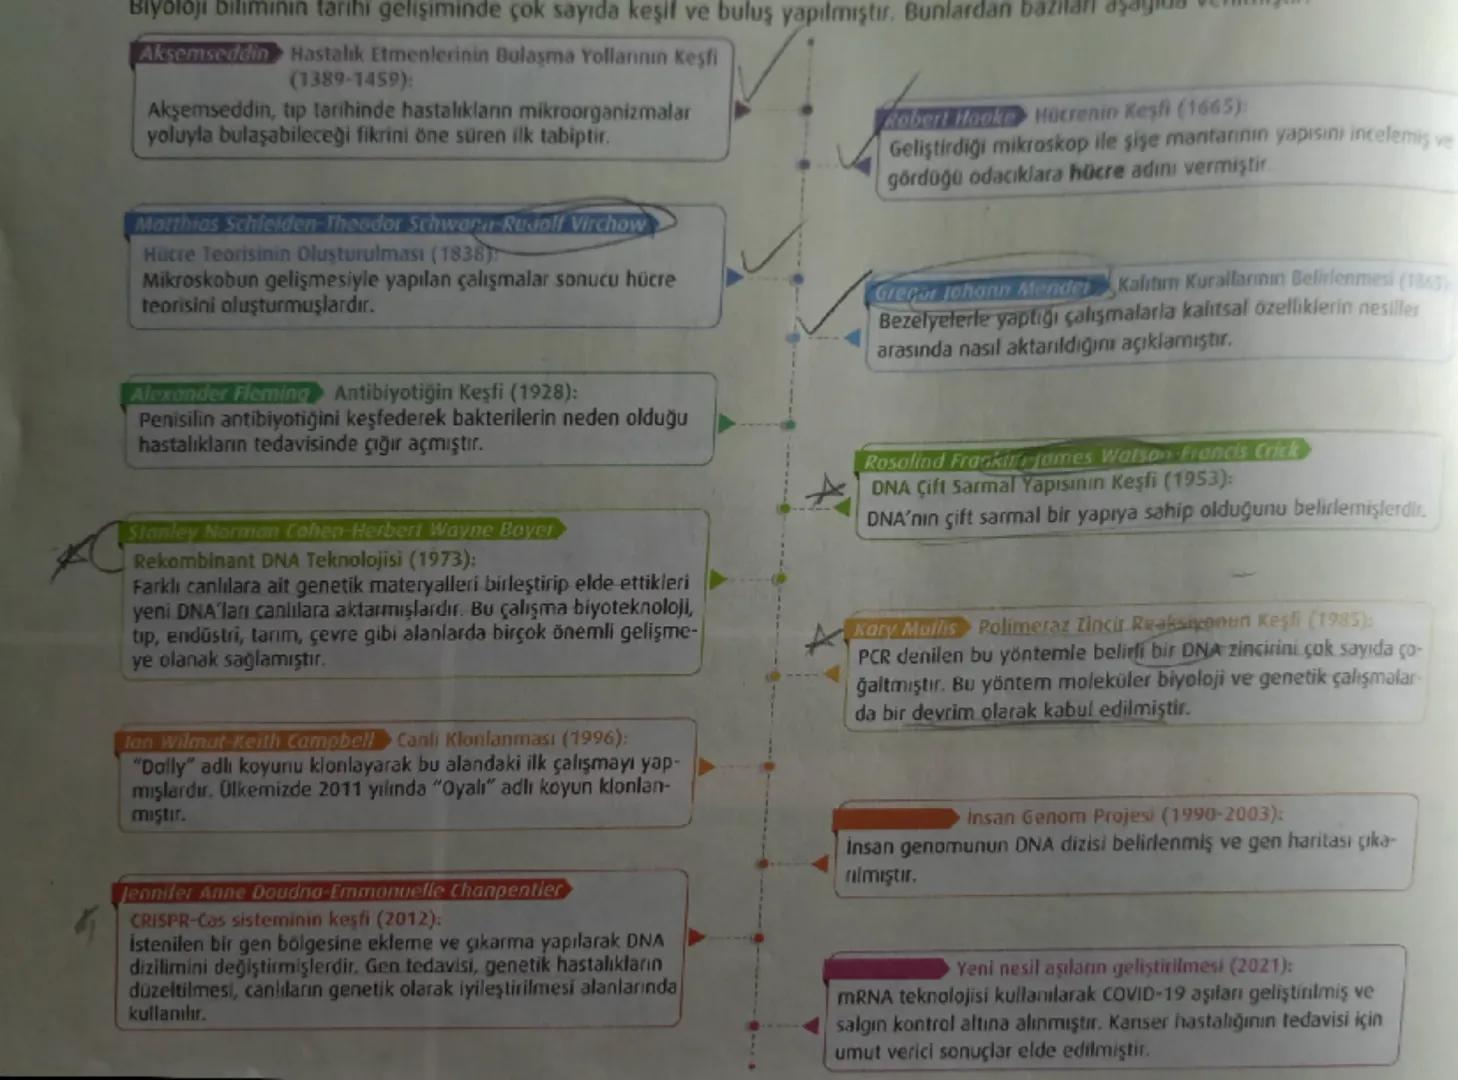 Biyoloji biliminin tarihi gelişiminde çok sayıda keşif ve buluş yapılmıştır. Bunlardan bazıları aşağıda
Akşemseddin Hastalık Etmenlerinin Bulaşma Yollarının Keşfi
(1389-1459):
Akşemseddin, tıp tarihinde hastalıkların mikroorganizmalar
yoluyla bulaşabileceği fikrini öne süren ilk tabiptir.
Robert Hooke Hücrenin Keşfi (1665):
Geliştirdiği mikroskop ile şişe mantarının yapısını incelemiş ve
gördüğü odacıklara hücre adını vermiştir.
Matthias Schleiden-Theodor Schwann-Rudolf Virchow
Hücre Teorisinin Oluşturulması (1838):
Mikroskobun gelişmesiyle yapılan çalışmalar sonucu hücre
teorisini oluşturmuşlardır.
Gregor Johann Mendel Kalıtım Kurallarının Belirlenmesi (1865):
Bezelyelerle yaptığı çalışmalarla kalıtsal özelliklerin nesiller
arasında nasıl aktarıldığını açıklamıştır.
Alexander Fleming Antibiyotiğin Keşfi (1928):
Penisilin antibiyotiğini keşfederek bakterilerin neden olduğu
hastalıkların tedavisinde çığır açmıştır.
Rosalind Franklin-James Watson-Francis Crick
DNA Çift Sarmal Yapısının Keşfi (1953):
DNA'nın çift sarmal bir yapıya sahip olduğunu belirlemişlerdir.
Stanley Norman Cohen-Herbert Wayne Boyer
Rekombinant DNA Teknolojisi (1973):
Farklı canlılara ait genetik materyalleri birleştirip elde ettikleri
yeni DNA'ları canlılara aktarmışlardır. Bu çalışma biyoteknoloji,
tıp, endüstri, tarım, çevre gibi alanlarda birçok önemli gelişme-
ye olanak sağlamıştır.
Kary Mullis Polimeraz Zincir Reaksiyonun Keşfi (1985):
PCR denilen bu yöntemle belirli bir DNA zincirini çok sayıda ço-
ğaltmıştır. Bu yöntem moleküler biyoloji ve genetik çalışmalar-
da bir devrim olarak kabul edilmiştir.
Ian Wilmut-Keith Campbell Canlı Klonlanması (1996):
"Dolly" adlı koyunu klonlayarak bu alandaki ilk çalışmayı yap-
mışlardır. Ülkemizde 2011 yılında "Oyalı" adlı koyun klonlan-
mıştır.
İnsan Genom Projesi (1990-2003):
İnsan genomunun DNA dizisi belirlenmiş ve gen haritası çıka-
rılmıştır.
Jennifer Anne Doudna-Emmanuelle Chanpentier
CRISPR-Cas sisteminin keşfi (2012):
İstenilen bir gen bölgesine ekleme ve çıkarma yapılarak DNA
dizilimini değiştirmişlerdir. Gen tedavisi, genetik hastalıkların
düzeltilmesi, canlıların genetik olarak iyileştirilmesi alanlarında
kullanılır.
Yeni nesil aşıların geliştirilmesi (2021):
mRNA teknolojisi kullanılarak COVID-19 aşıları geliştirilmiş ve
salgın kontrol altına alınmıştır. Kanser hastalığının tedavisi için
umut verici sonuçlar elde edilmiştir.